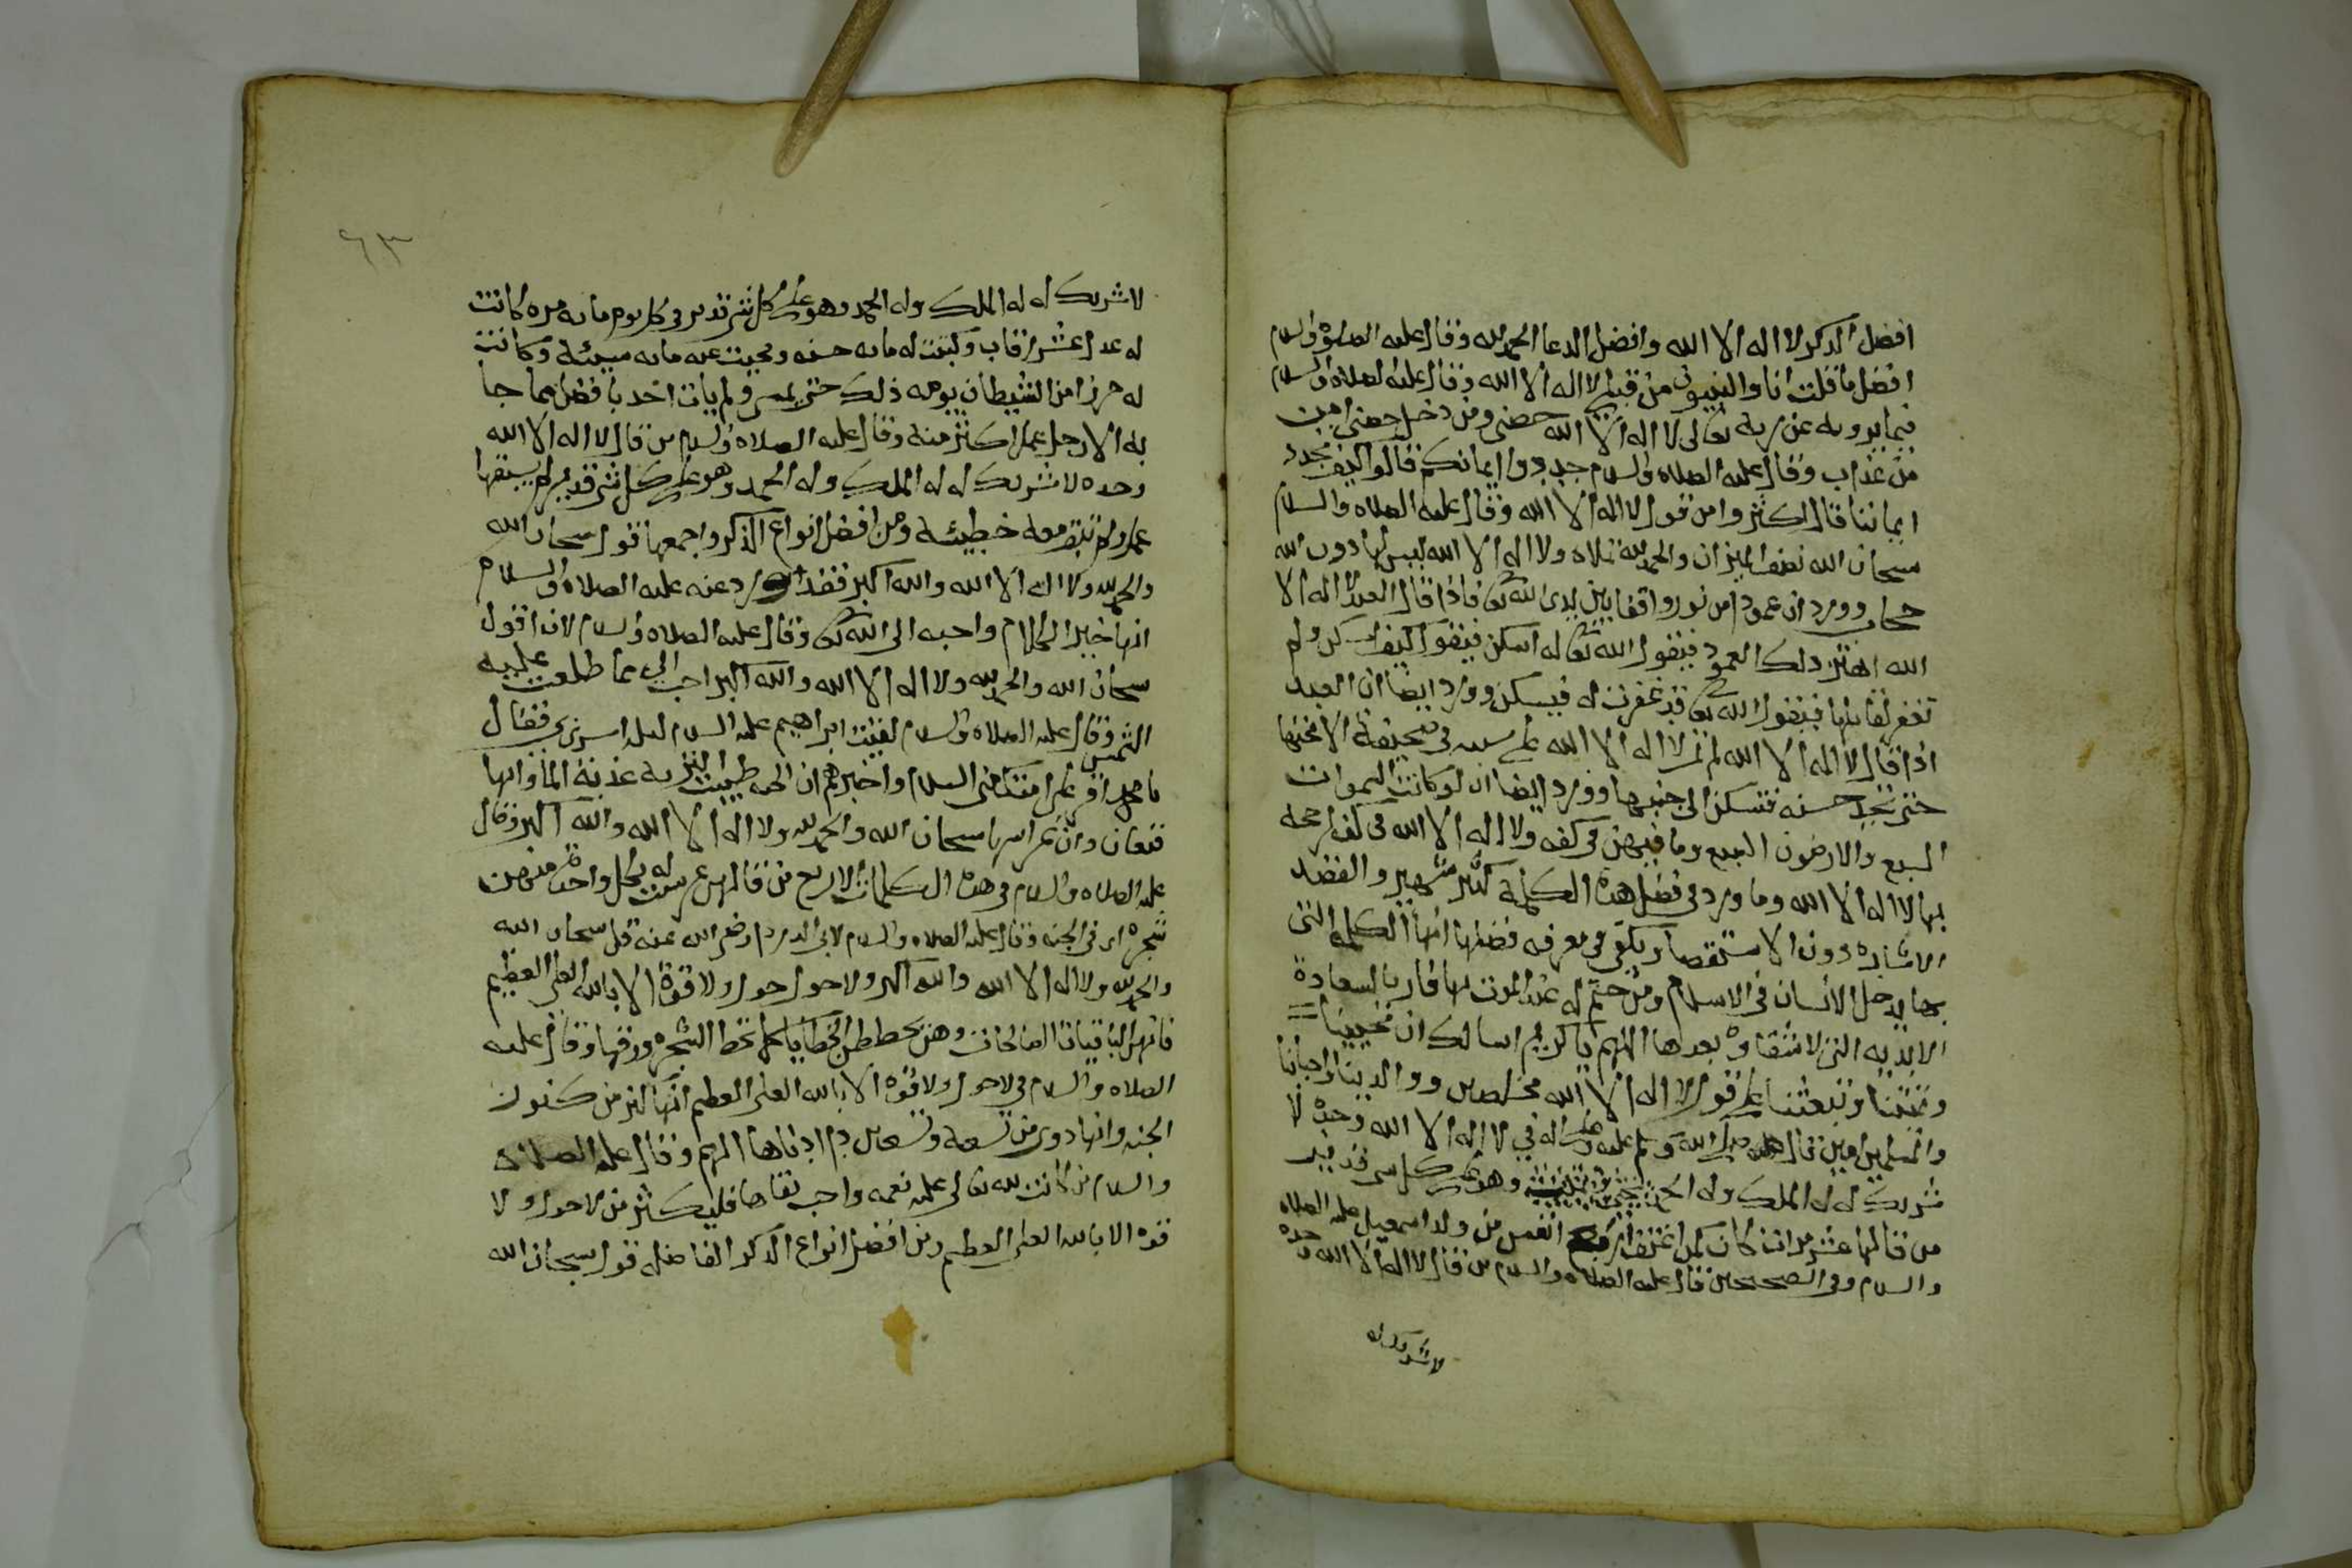 افضل الذكر لا اله الا الله وافضل الدعا الحمد لله وقال عليه الصلاة والسلام
افضل ما قلت انا والنبيون من قبلي لا اله الا الله وقال عليه الصلاة والسلام
فيما يرويه عن ربه تعالى لا اله الا الله حصني ومن دخل حصني امن
من عذابي وقال عليه الصلاة والسلام جددوا ايمانكم قالوا كيف نجدد
ايماننا قال اكثروا من قول لا اله الا الله وقال عليه الصلاه والسلام
سبحان الله نصف الميزان والحمد لله تملاه ولا اله الا الله ليس لها دون الله
حجاب وورد ان عمودا من نور واقفا بين يدي الله تعالى فاذا قال العبد لا اله الا
الله اهتز ذلك العمود فيقول الله تعالى له اسكن فيقول كيف اسكن ولم
تغفر لقائلها فيقول الله تعالى قد غفرت له فيسكن وورد ايضا ان العبد
اذا قال لا اله الا الله لم تمر لا اله الا الله على سيئه في صحيفته الا محتها
حتى تجد حسنه فتسكن الى جنبها وورد ايضا ان لو كانت السموات
السبع والارضون السبع وما فيهن في كفه ولا اله الا الله في كفه لرجحت
بها لا اله الا الله وما ورد في فضل هذه الكلمة كثير شهير والقصد
الاشاره دون الاستقصا ويكفي في معرفه فضلها انها الكلمه التي
بها يدخل الانسان في الاسلام ومن ختم له عند الموت بها فاز بالسعادة
الابديه التي لا شقاوه بعدها اللهم يا كريم اسالك ان تحيينا
وتميتنا وتبعثنا على قول لا اله الا الله مخلصين ووالدينا واحبابنا
والمسلمين امين قال صلى الله عليه وسلم وعلى اله في لا اله الا الله وحده لا
شريك له له الملك وله الحمد يحيي ويميت وهو على كل شي قدير
من قالها عشر مرات كان كمن اعتق اربع انفس من ولد اسمعيل عليه الصلاه
والسلام وفي الصحيحين قال عليه الصلاه والسلام من قال لا اله الا الله وحده
لا شريك له
٦٣
لا شريك له له الملك وله الحمد وهو على كل شي قدير في كل يوم مايه مره كانت
له عدل عشر رقاب وكتبت له مايه حسنه ومحيت عنه مايه سيئة وكانت
له حرزا من الشيطان يومه ذلك حتى يمسي ولم يات احد بافضل مما جا
به الا رجل عمل اكثر منه وقال عليه الصلاه والسلام من قال لا اله الا الله
وحده لا شريك له له الملك وله الحمد وهو على كل شي قدير لم يسبقها
عمل ولم تبق معه خطيئة ومن افضل انواع الذكر واجمعها قول سبحان الله
والحمد لله ولا اله الا الله والله اكبر فقد ورد عنه عليه الصلاه والسلام
انها خير الكلام واحبه الى الله تعالى وقال عليه الصلاه والسلام لان اقول
سبحان الله والحمد لله ولا اله الا الله والله اكبر احب الي مما طلعت عليه
الشمس وقال عليه الصلاه والسلام لقيت ابراهيم عليه السلام ليله اسري بي فقال
يا محمد اقر على امتك مني السلام واخبرهم ان الجنه طيبت التربه عذبة الما وانها
قيعان وان غراسها سبحان الله والحمد لله ولا اله الا الله والله اكبر وقال
عليه الصلاه والسلام في هذه الكلمات الاربع من قالهن غرست له بكل واحدة منهن
شجره اي في الجنه وقال عليه الصلاه والسلام لابي الدردا رضي الله عنه قل سبحان الله
والحمد لله ولا اله الا الله والله اكبر ولا حول ولا قوة الا بالله العلي العظيم
فانهن الباقيات الصالحات وهن يحططن الخطايا كما تحط الشجره ورقها وقال عليه
الصلاه والسلام في لا حول ولا قوه الا بالله العلي العظيم انها كنز من كنوز
الجنه وانها دوى من تسعة وتسعين دا ادناها الهم وقال عليه الصلاه
والسلام من كانت لله تعالى عليه نعمه واحب بقاها فليكثر من لا حول ولا
قوه الا بالله العلي العظيم ومن افضل انواع الذكر الفاضله قول سبحان الله